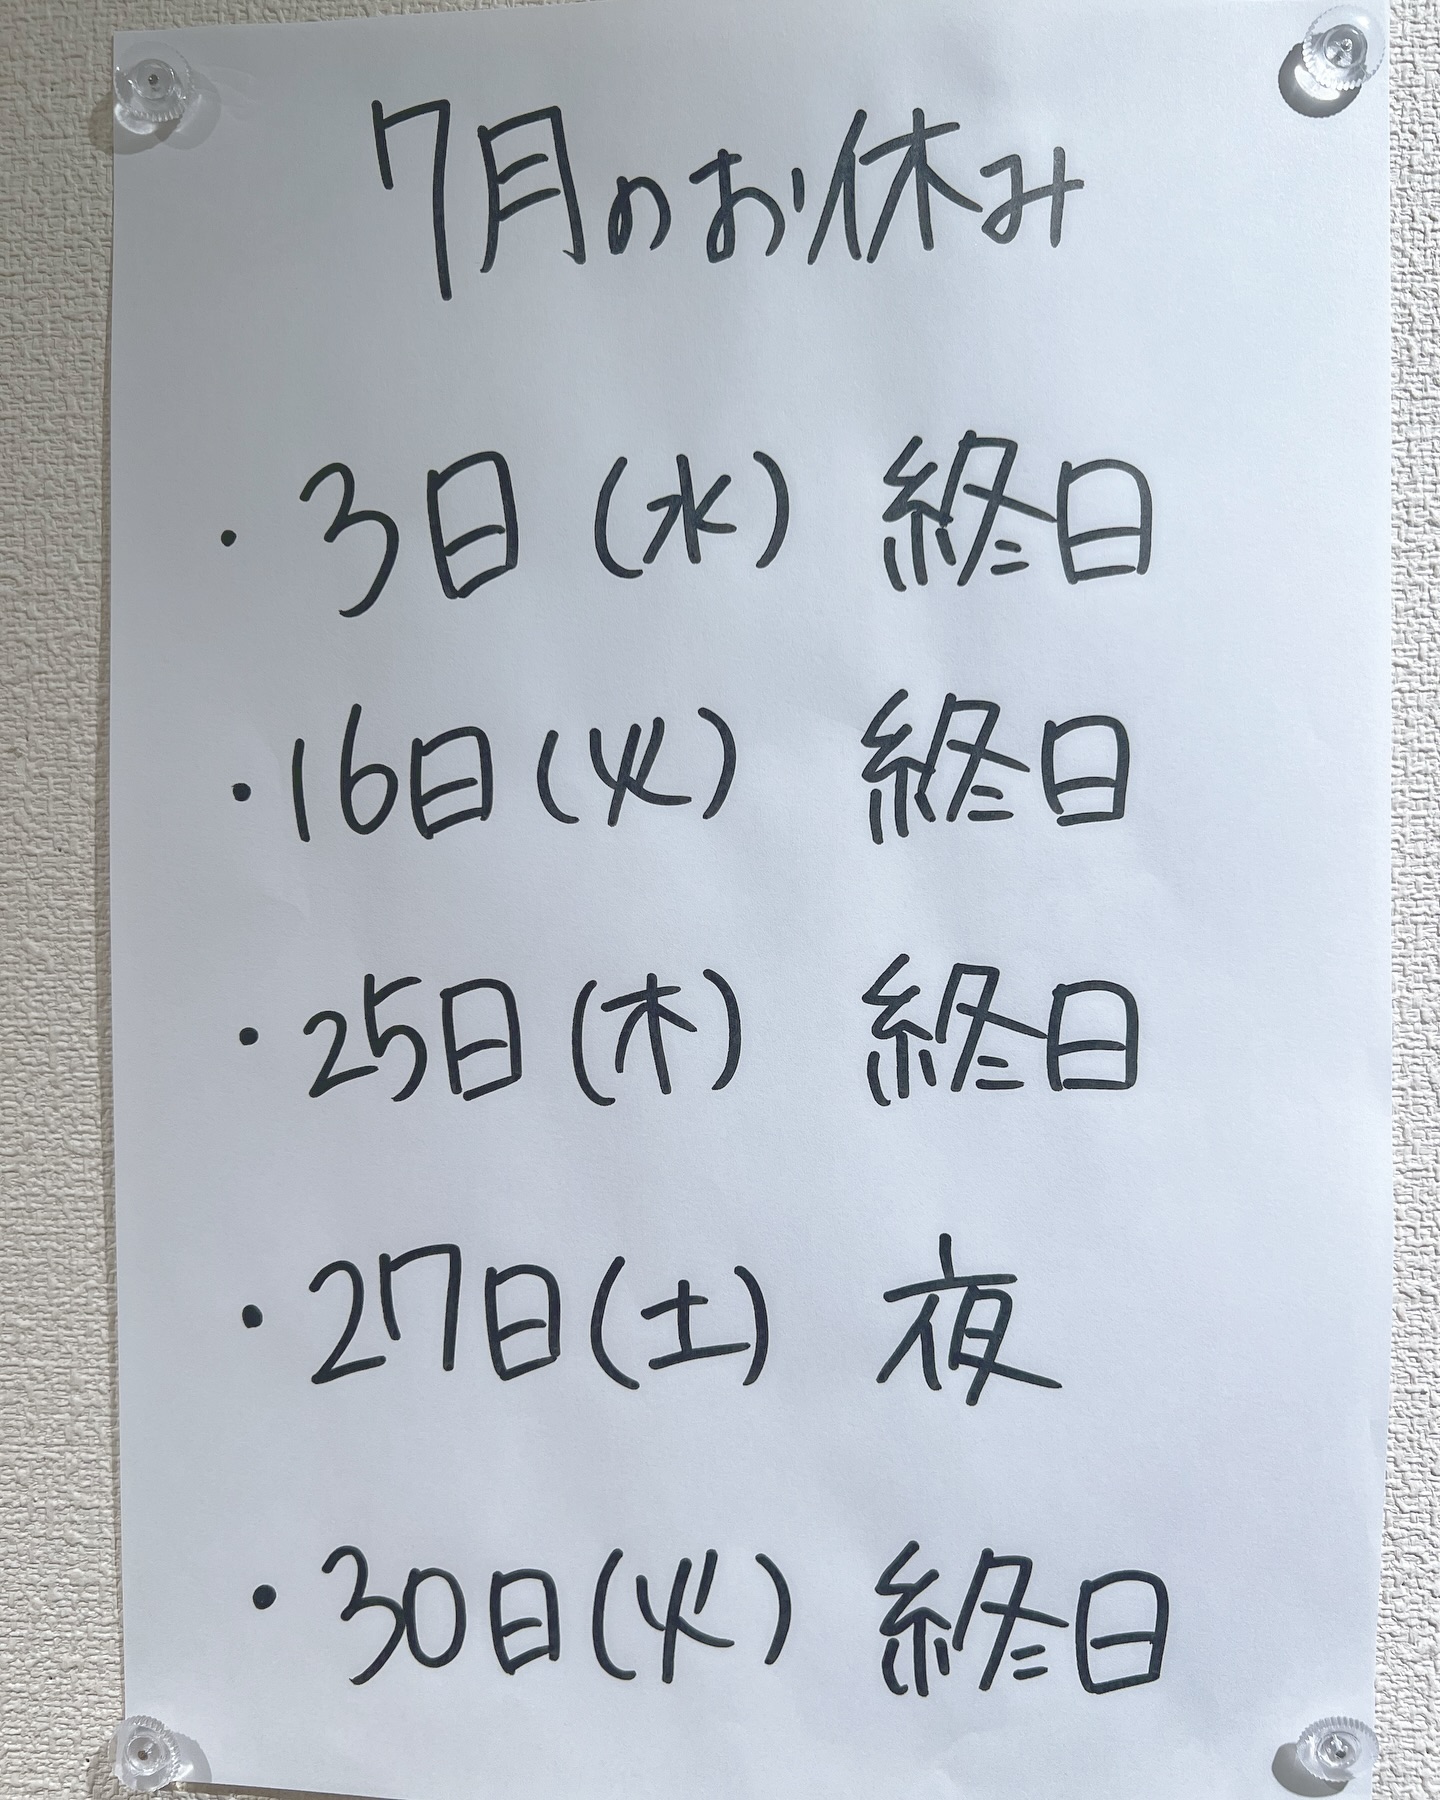 7月のお休み
・3日(水) 終日
・16日(火) 終日
・25日(木) 終日
・27日(土) 夜
・30日(火) 終日